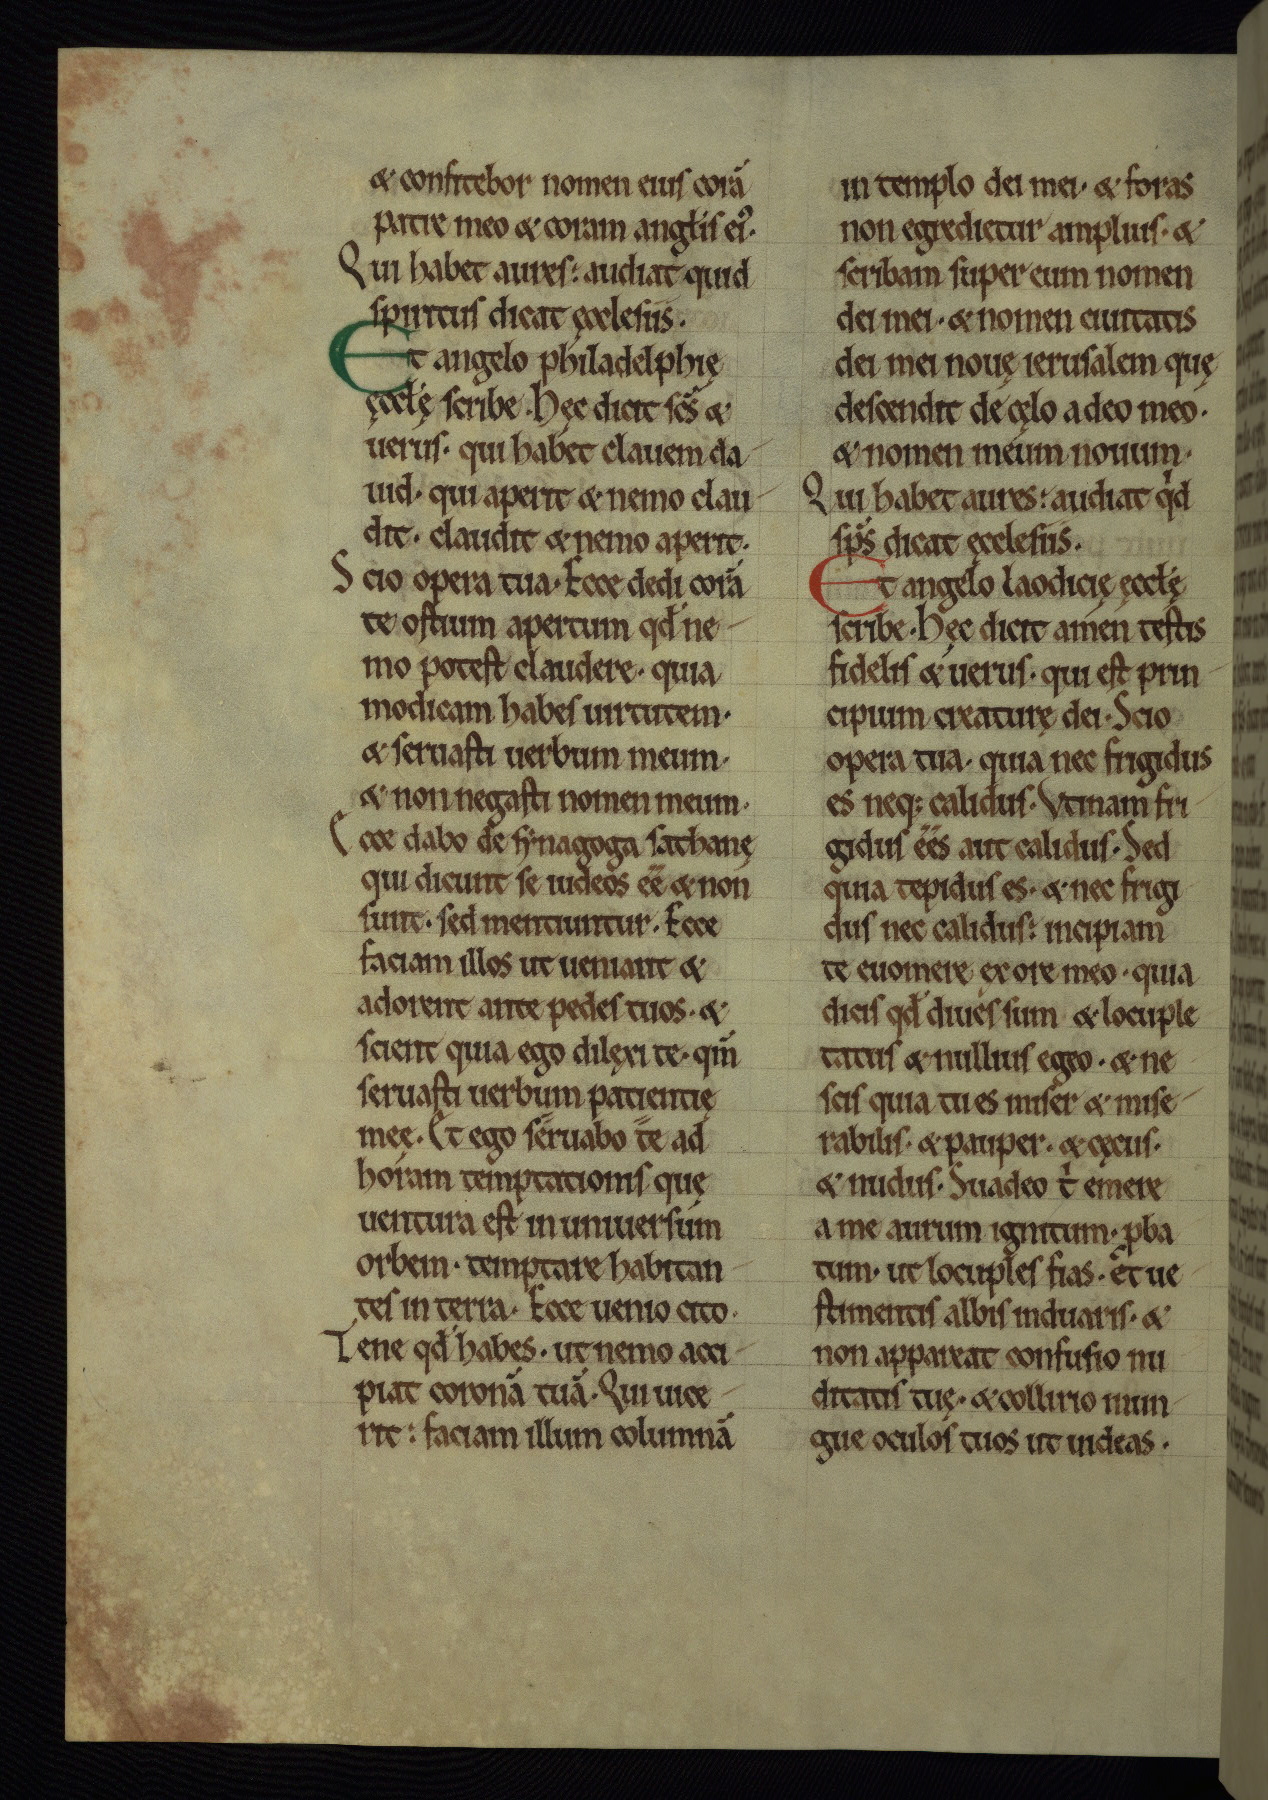 & confitebor nomen eius corā
patre meo & coram angłis ei᾽.
Qui habet aures: audiat quid
spiritus dicat ęcclesiis.
Et angelo philadelphię
ęccłę scribe. Hęc dicit sc̄s &
uerus. qui habet clauem da-
uid. qui aperit & nemo clau-
dit. claudit & nemo aperit.
Scio opera tua. Ecce dedi corā
te ostium apertum qđ ne-
mo potest claudere. quia
modicam habes uirtutem.
& seruasti uerbum meum.
& non negasti nomen meum.
Ecce dabo de synagoga sathanę
qui dicunt se iudeos ēē & non
sunt. sed mentiuntur. Ecce
faciam illos ut ueniant &
adorent ante pedes tuos. &
scient quia ego dilęxi te. qm̄
seruasti uerbum patientię
meę. Et ego seruabo te ad
horam temptationis quę
uentura est in uniuersum
orbem. temptare habitan-
tes in terra. Ecce uenio cito.
Tene qđ habes. ut nemo acci-
piat coronā tuā. Qui uice-
rit: faciam illum columnā
in templo dei mei. & foras
non egredietur amplius. &
scribam super eum nomen
dei mei. & nomen ciuitatis
dei mei nouę ierusalem quę
descendit de cęlo a deo meo.
& nomen meum nouum.
Qui habet aures: audiat qͥd
sp̄s dicat ęcclesiis.
Et angelo laodicię ęccłę
scribe. Hęc dicit amen testis
fidelis & uerus. qui est prin-
cipium creaturę dei. Scio
opera tua. quia nec frigidus
es neq; calidus. Vtinam fri-
gidus ēēs aut calidus. Sed
quia tepidus es. & nec frigi
dus nec calidus: incipiam
te euomere ex ore meo. quia
dicis qđ diues sum & locuple
tatus & nullius egeo. & ne-
scis quia tu es miser & mise-
rabilis. & pauper. & cęcus.
& nudus. Suadeo tͥ emere
a me aurum ignitum. ꝓba
tum. ut locuples fias. et ue-
stimentis albis induaris. &
non appareat confusio nu
ditatis tuę. & collirio inun-
gue oculos tuos ut uideas.